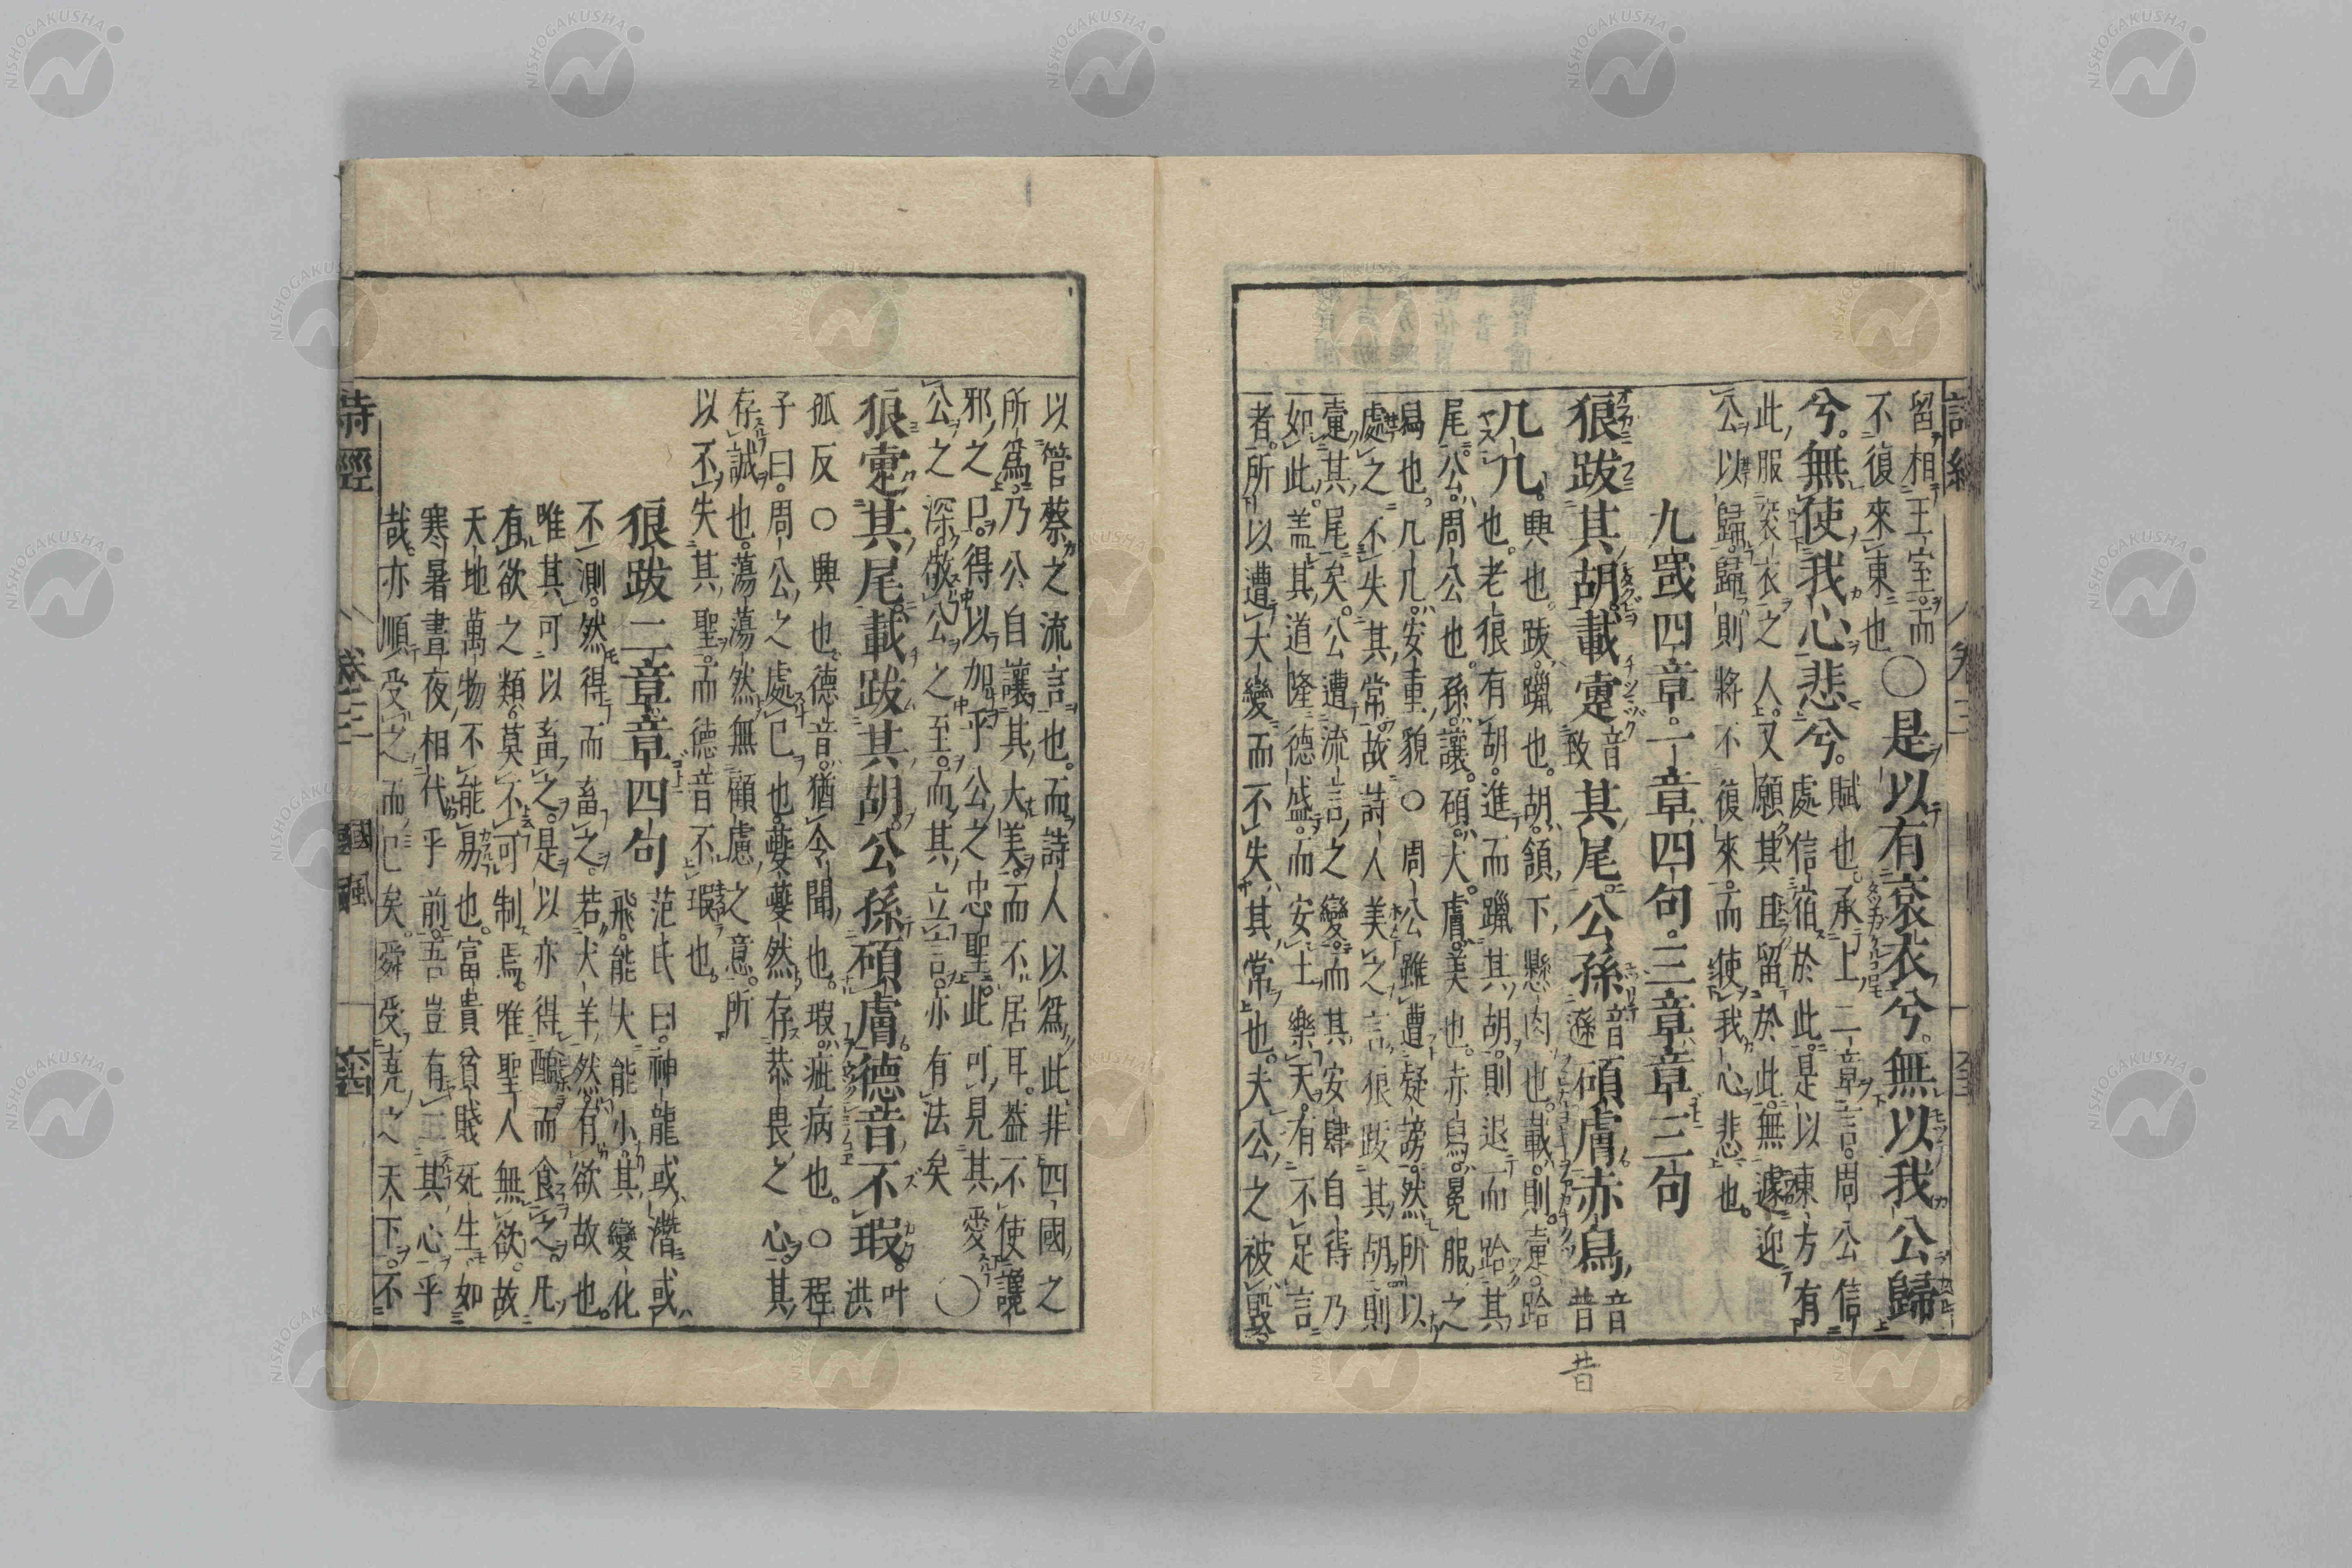 留相王室而○是以有袞衣兮無以我公歸
不復來東也
兮無使我心悲兮。賦也承上二章言周公信
處信宿於此是以東方有
此服袞衣之人又願其且留於此無遽迎
公以歸歸則將不復來而使我心悲也
九罭四章一章四句三章章三句
狼跋其胡載疐音致其尾公孫音遜碩膚赤舄音昔
几几。興也跋躐也胡頷下懸肉也載則疐跲
也老狼有胡進而躐其胡則退而跲其
尾公周公也孫讓碩大膚美也赤舄冕服之
舄也几几安重貌○周公雖遭疑謗然所以
處之不失其常故詩人美之言狼跋其胡則
疐其尾矣公遭流言之變而其安肆自得乃
如此蓋其道隆德盛而安土樂天有不足言
者所以遭大變而不失其常也夫公之被毀
昔
以管蔡之流言也而詩人以為此非四國之
所為乃公自讓其大美而不居耳蓋不使讒
邪之口得以加乎公之忠聖此可見其愛
公之深敬公之至而其立言亦有法矣○
狼疐其尾載跋其胡公孫碩膚德音不瑕叶洪
孤反○興也德音猶令聞也瑕疵病也○程
子曰周公之處已也夔夔然存恭畏之心其
存誠也蕩蕩然無顧慮之意所
以不失其聖而德音不瑕也
狼跋二章章四句 范氏曰神龍或潛或
飛能大能小其變化
不測然得而畜之若犬羊然有欲故也
唯其可以畜之是以亦得醢而食之凡
有欲之類莫不可制焉唯聖人無欲故
天地萬物不能易也富貴貧賤死生如
寒暑晝夜相代乎前吾豈有二其心乎
哉亦順受之而已矣舜受堯之天下不
詩經 卷三 國風 六十四